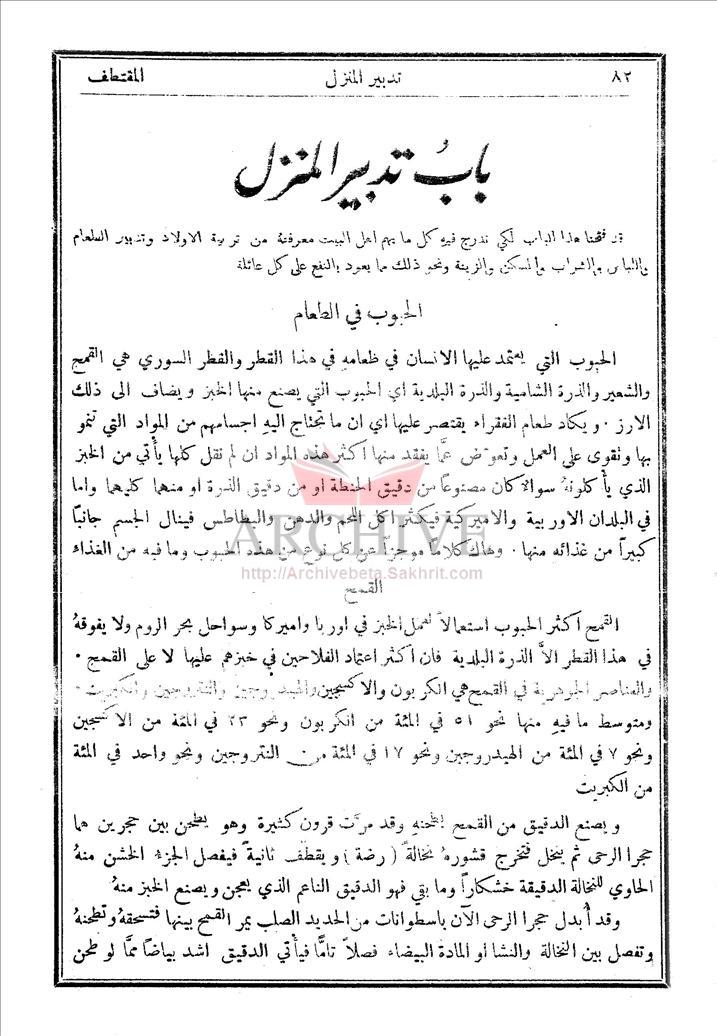 ٨٢ تدبير المنزل المقتطف
بابُ تدبير المنزل
قد فتحنا هذا الباب لكي ندرج فيهِ كل ما يهم اهل البيت معرفتهُ من تربية الاولاد وتدبير الطعام
واللباس والشراب والمسكن والزينة ونحو ذلك مما يعود بالنفع على كل عائلة
الحبوب في الطعام
الحبوب التي يعتمد عليها الانسان في طعامهِ في هذا القطر والقطر السوري هي القمح
والشعير والذرة الشامية والذرة البلدية اي الحبوب التي يصنع منها الخبز ويضاف الى ذلك
الارز . ويكاد طعام الفقراء يقتصر عليها اي ان ما تحتاج اليهِ اجسامهم من المواد التي تنمو
بها وتقوى على العمل وتعوّض عمَّا يفقد منها اكثر هذه المواد ان لم نقل كلها يأتي من الخبز
الذي يأكلونهُ سوالا كان مصنوعاً من دقيق الحنطة او من دقيق الذرة او منهما كليهما واما
في البلدان الاوربية والاميركية فيكثر اكل اللحم والدهن والبطاطس فينال الجسم جانباً
كبيراً من غذائه منها . وهاك كلاماً موجزاً عن كل نوع من هذه الحبوب وما فيه من الغذاء
ARCHIVE
http://Archivebeta.Sakhrit.com
القمح
القمح اكثر الحبوب استعمالاً لعمل الخبز في اوربا واميركا وسواحل بحر الروم ولا يفوقهُ
في هذا القطر الاَّ الذرة البلدية فان اكثر اعتماد الفلاحين في خبزهم عليها لا على القمح .
والعناصر الجوهرية في القمح هي الكربون والاكسجين والهيدروجين والنتروجين والكبريت .
ومتوسط ما فيهِ منها نحو ٥١ في المئة من الكربون ونحو ٢٣ في المئة من الاكسجين
ونحو ٧ في المئة من الهيدروجين ونحو ١٧ في المئة من النتروجين ونحو واحد في المئة
من الكبريت
ويصنع الدقيق من القمح بطحنهِ وقد مرَّت قرون كثيرة وهو يطحن بين حجرين هما
حجرا الرحى ثم ينخل فتخرج قشورهُ نخالةً (رضة) ويقطف ثانيةً فيفصل الجزء الخشن منهُ
الحاوي للنخالة الدقيقة خشكاراً وما بقي فهو الدقيق الناعم الذي يعجن ويصنع الخبز منهُ
وقد أُبدل حجرا الرحى الآن باسطوانات من الحديد الصلب يمر القمح بينها فتسحقهُ وتطحنهُ
وتفصل بين النخالة والنشا او المادة البيضاء فصلاً تامًّا فيأتي الدقيق اشد بياضاً ممَّا لو طحن